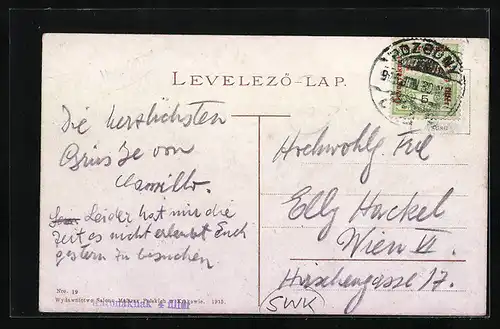 POZSONY
LEVELEZŐ-LAP.
Die herzlichsten
Grüsse von
Camillo.
Leider hat mir die
Zeit es nicht erlaubt Euch
gestern zu besuchen
Hochwohlg. Frl
Elly Hackel
Wien VI.
Hirschengasse 17.
(SWK)
Nro. 19
Wydawnictwo Salonu Malarzy Polskich w Krakowie. 1915.
Katonáknak 4 fillér